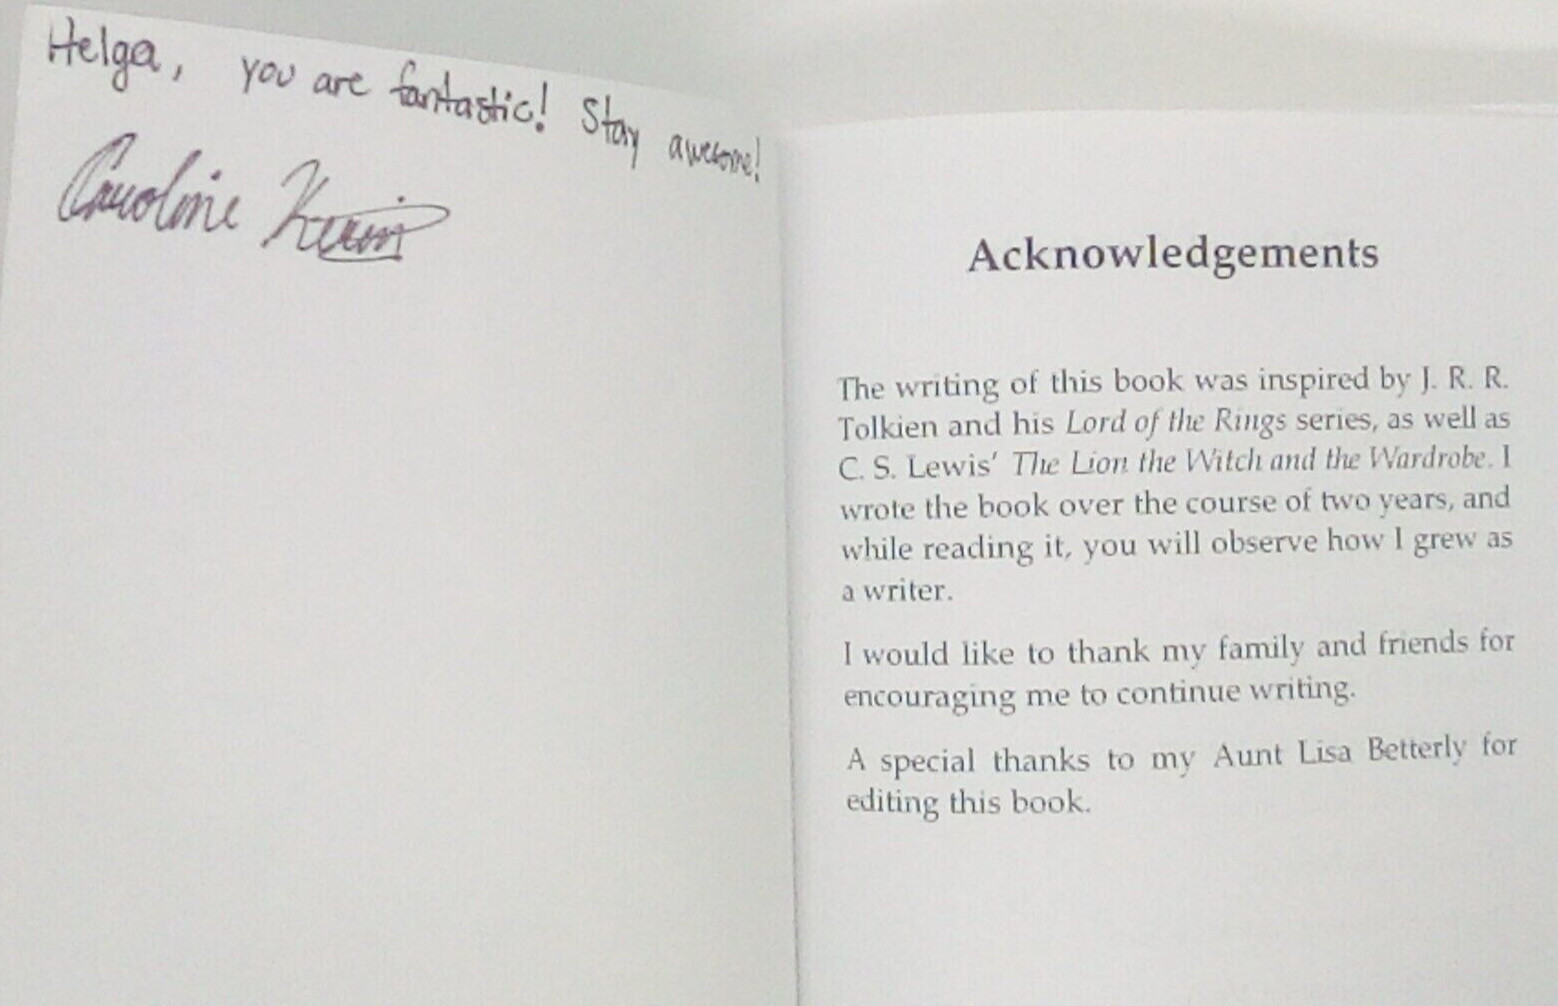 Helga, you are fantastic! Stay awesome!
Caroline
Acknowledgements
The writing of this book was inspired by J. R. R.
Tolkien and his Lord of the Rings series, as well as
C. S. Lewis' The Lion the Witch and the Wardrobe. I
wrote the book over the course of two years, and
while reading it, you will observe how I grew as
a writer.
I would like to thank my family and friends for
encouraging me to continue writing.
A special thanks to my Aunt Lisa Betterly for
editing this book.